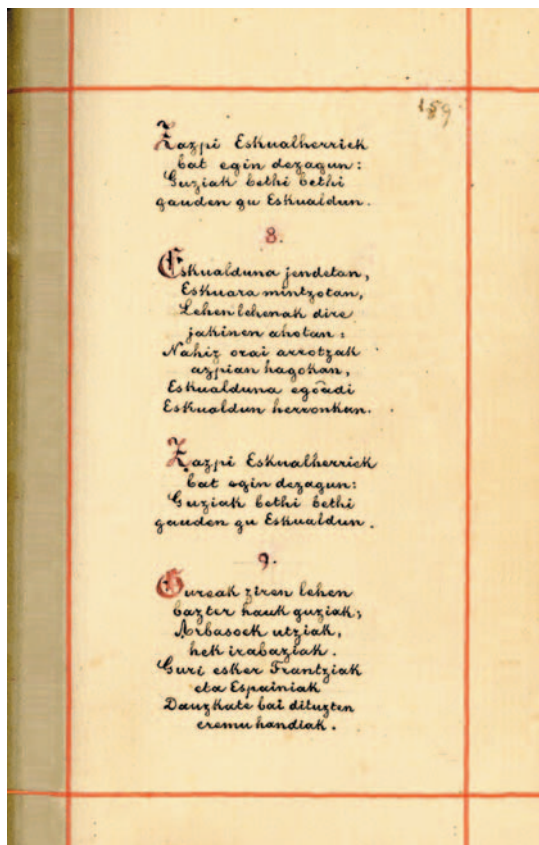 189
Zazpi Eskualherriek
bat egin dezagun:
Guziak bethi bethi
gauden gu Eskualdun.
8.
Eskualduna jendetan,
Eskuara mintzotan,
Lehen lehenak dire
jakinen ahotan:
Nahiz orai arrotzak
azpian hagokan,
Eskualduna egoadi
Eskualdun herronkan.
Zazpi Eskualherriek
bat egin dezagun:
Guziak bethi bethi
gauden gu Eskualdun.
9.
Gureak ziren lehen
bazter hauk guziak;
Arbasoek utziak,
hek irabaziak.
Guri esker Frantziak
eta Espainiak
Dauzkate bai dituzten
eremu handiak.